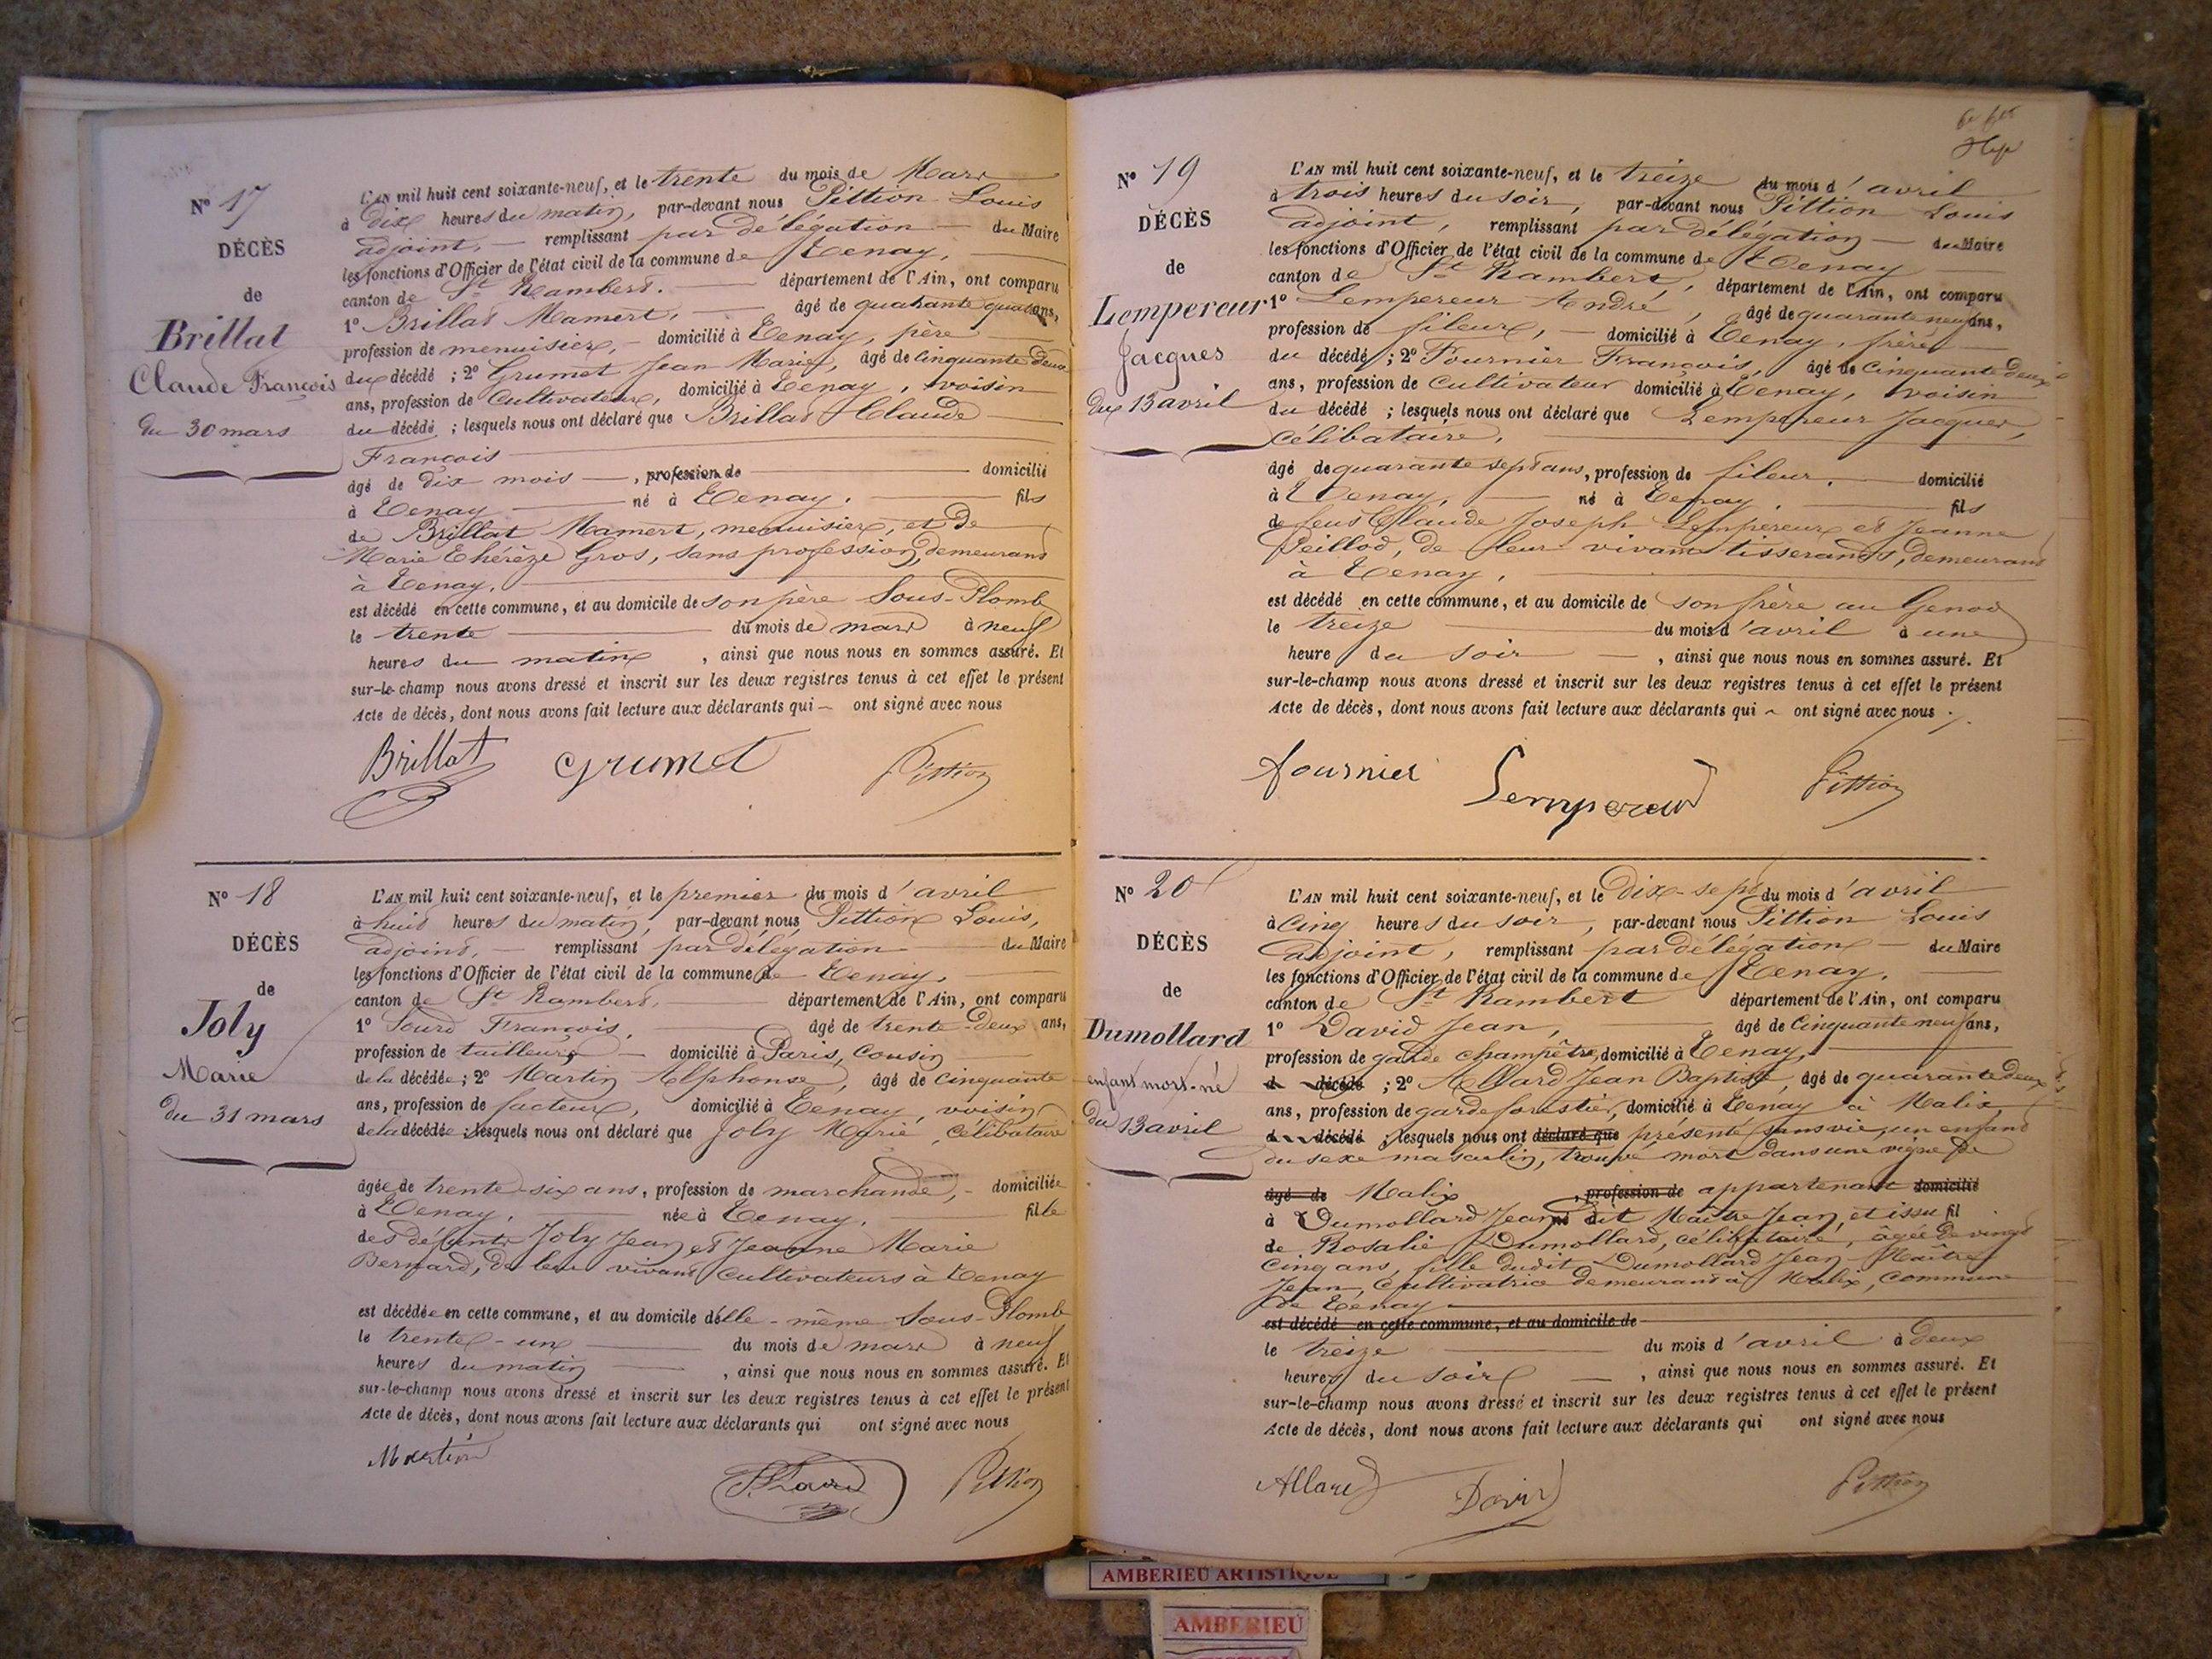 N° 17
DÉCÈS
de
Brillat
Claude François
du 30 mars
L'AN mil huit cent soixante-neuf, et le trente du mois de Mars
à dix heures du matin, par-devant nous Pittion Louis
adjoint, remplissant par délégation du Maire
les fonctions d'Officier de l'état civil de la commune de Tenay,
canton de St Rambert. département de l'Ain, ont comparu
1° Brillat Mamert, âgé de quarante quatre ans,
profession de menuisier, domicilié à Tenay, père
du décédé ; 2° Grumet Jean Marie, âgé de cinquante deux
ans, profession de cultivateur, domicilié à Tenay, voisin
du décédé ; lesquels nous ont déclaré que Brillat Claude
François
âgé de dix mois, profession de domicilié
à Tenay né à Tenay. fils
de Brillat Mamert, menuisier, et de
Marie Thérèze Gros, sans profession, demeurant
à Tenay.
est décédé en cette commune, et au domicile de son père Sous-Plomb
le trente du mois de mars à neuf
heures du matin, ainsi que nous nous en sommes assuré. Et
sur-le-champ nous avons dressé et inscrit sur les deux registres tenus à cet effet le présent
Acte de décès, dont nous avons fait lecture aux déclarants qui ont signé avec nous
Brillat Grumet Pittion
N° 18
DÉCÈS
de
Joly
Marie
du 31 mars
L'AN mil huit cent soixante-neuf, et le premier du mois d'avril
à huit heures du matin, par-devant nous Pittion Louis,
adjoint, remplissant par délégation du Maire
les fonctions d'Officier de l'état civil de la commune de Tenay,
canton de St Rambert, département de l'Ain, ont comparu
1° Sourd François, âgé de trente-deux ans,
profession de tailleur, domicilié à Paris, cousin
de la décédée ; 2° Martin Alphonse, âgé de cinquante
ans, profession de facteur, domicilié à Tenay, voisin
de la décédée ; lesquels nous ont déclaré que Joly Marie, célibataire
âgée de trente-six ans, profession de marchande, domiciliée
à Tenay, née à Tenay, fille
des défunts Joly Jean et Jeanne Marie
Bernard, de leur vivant cultivateurs à Tenay
est décédée en cette commune, et au domicile d'elle-même Sous-Plomb
le trente-un du mois de mars à neuf
heures du matin, ainsi que nous nous en sommes assuré. Et
sur-le-champ nous avons dressé et inscrit sur les deux registres tenus à cet effet le présent
Acte de décès, dont nous avons fait lecture aux déclarants qui ont signé avec nous
Martin Pittion
N° 19
DÉCÈS
de
Lempereur
Jacques
du 13 avril
L'AN mil huit cent soixante-neuf, et le treize du mois d'avril
à trois heures du soir, par-devant nous Pittion Louis
adjoint, remplissant par délégation du Maire
les fonctions d'Officier de l'état civil de la commune de Tenay
canton de St Rambert, département de l'Ain, ont comparu
1° Lempereur André, âgé de quarante neuf ans,
profession de fileur, domicilié à Tenay, frère
du décédé ; 2° Fournier François, âgé de cinquante deux
ans, profession de cultivateur domicilié à Tenay, voisin
du décédé ; lesquels nous ont déclaré que Lempereur Jacques,
célibataire,
âgé de quarante sept ans, profession de fileur, domicilié
à Tenay, né à Tenay fils
de feus Claude Joseph Lempereur et Jeanne
Peillod, de leur vivant tisserands, demeurant
à Tenay,
est décédé en cette commune, et au domicile de son frère au Genod
le treize du mois d'avril à une
heure du soir, ainsi que nous nous en sommes assuré. Et
sur-le-champ nous avons dressé et inscrit sur les deux registres tenus à cet effet le présent
Acte de décès, dont nous avons fait lecture aux déclarants qui ont signé avec nous.
fournier Lempereur Pittion
N° 20
DÉCÈS
de
Dumollard
enfant mort-né
du 13 avril
L'AN mil huit cent soixante-neuf, et le dix-sept du mois d'avril
à cinq heures du soir, par-devant nous Pittion Louis
adjoint, remplissant par délégation du Maire
les fonctions d'Officier de l'état civil de la commune de Tenay.
canton de St Rambert département de l'Ain, ont comparu
1° David Jean, âgé de cinquante neuf ans,
profession de garde champêtre, domicilié à Tenay,
d décédé ; 2° Allard Jean Baptiste, âgé de quarante deux
ans, profession de garde forestier, domicilié à Tenay à Malix,
d décédé ; lesquels nous ont déclaré que présenté sans vie, un enfant
du sexe masculin, trouvé mort dans une vigne de
âgé de Malix, profession de appartenant domicilié
à Dumollard Jean né dit Maître Jean, et issu fil
de Rosalie Dumollard, célibataire, âgée de vingt
cinq ans, fille dudit Dumollard Jean Maître
Jean, cultivatrice demeurant à Malix, commune
de Tenay
est décédé en cette commune, et au domicile de
le treize du mois d'avril à deux
heures du soir, ainsi que nous nous en sommes assuré. Et
sur-le-champ nous avons dressé et inscrit sur les deux registres tenus à cet effet le présent
Acte de décès, dont nous avons fait lecture aux déclarants qui ont signé avec nous
Allard David Pittion
AMBERIEU ARTISTIQUE
AMBERIEU